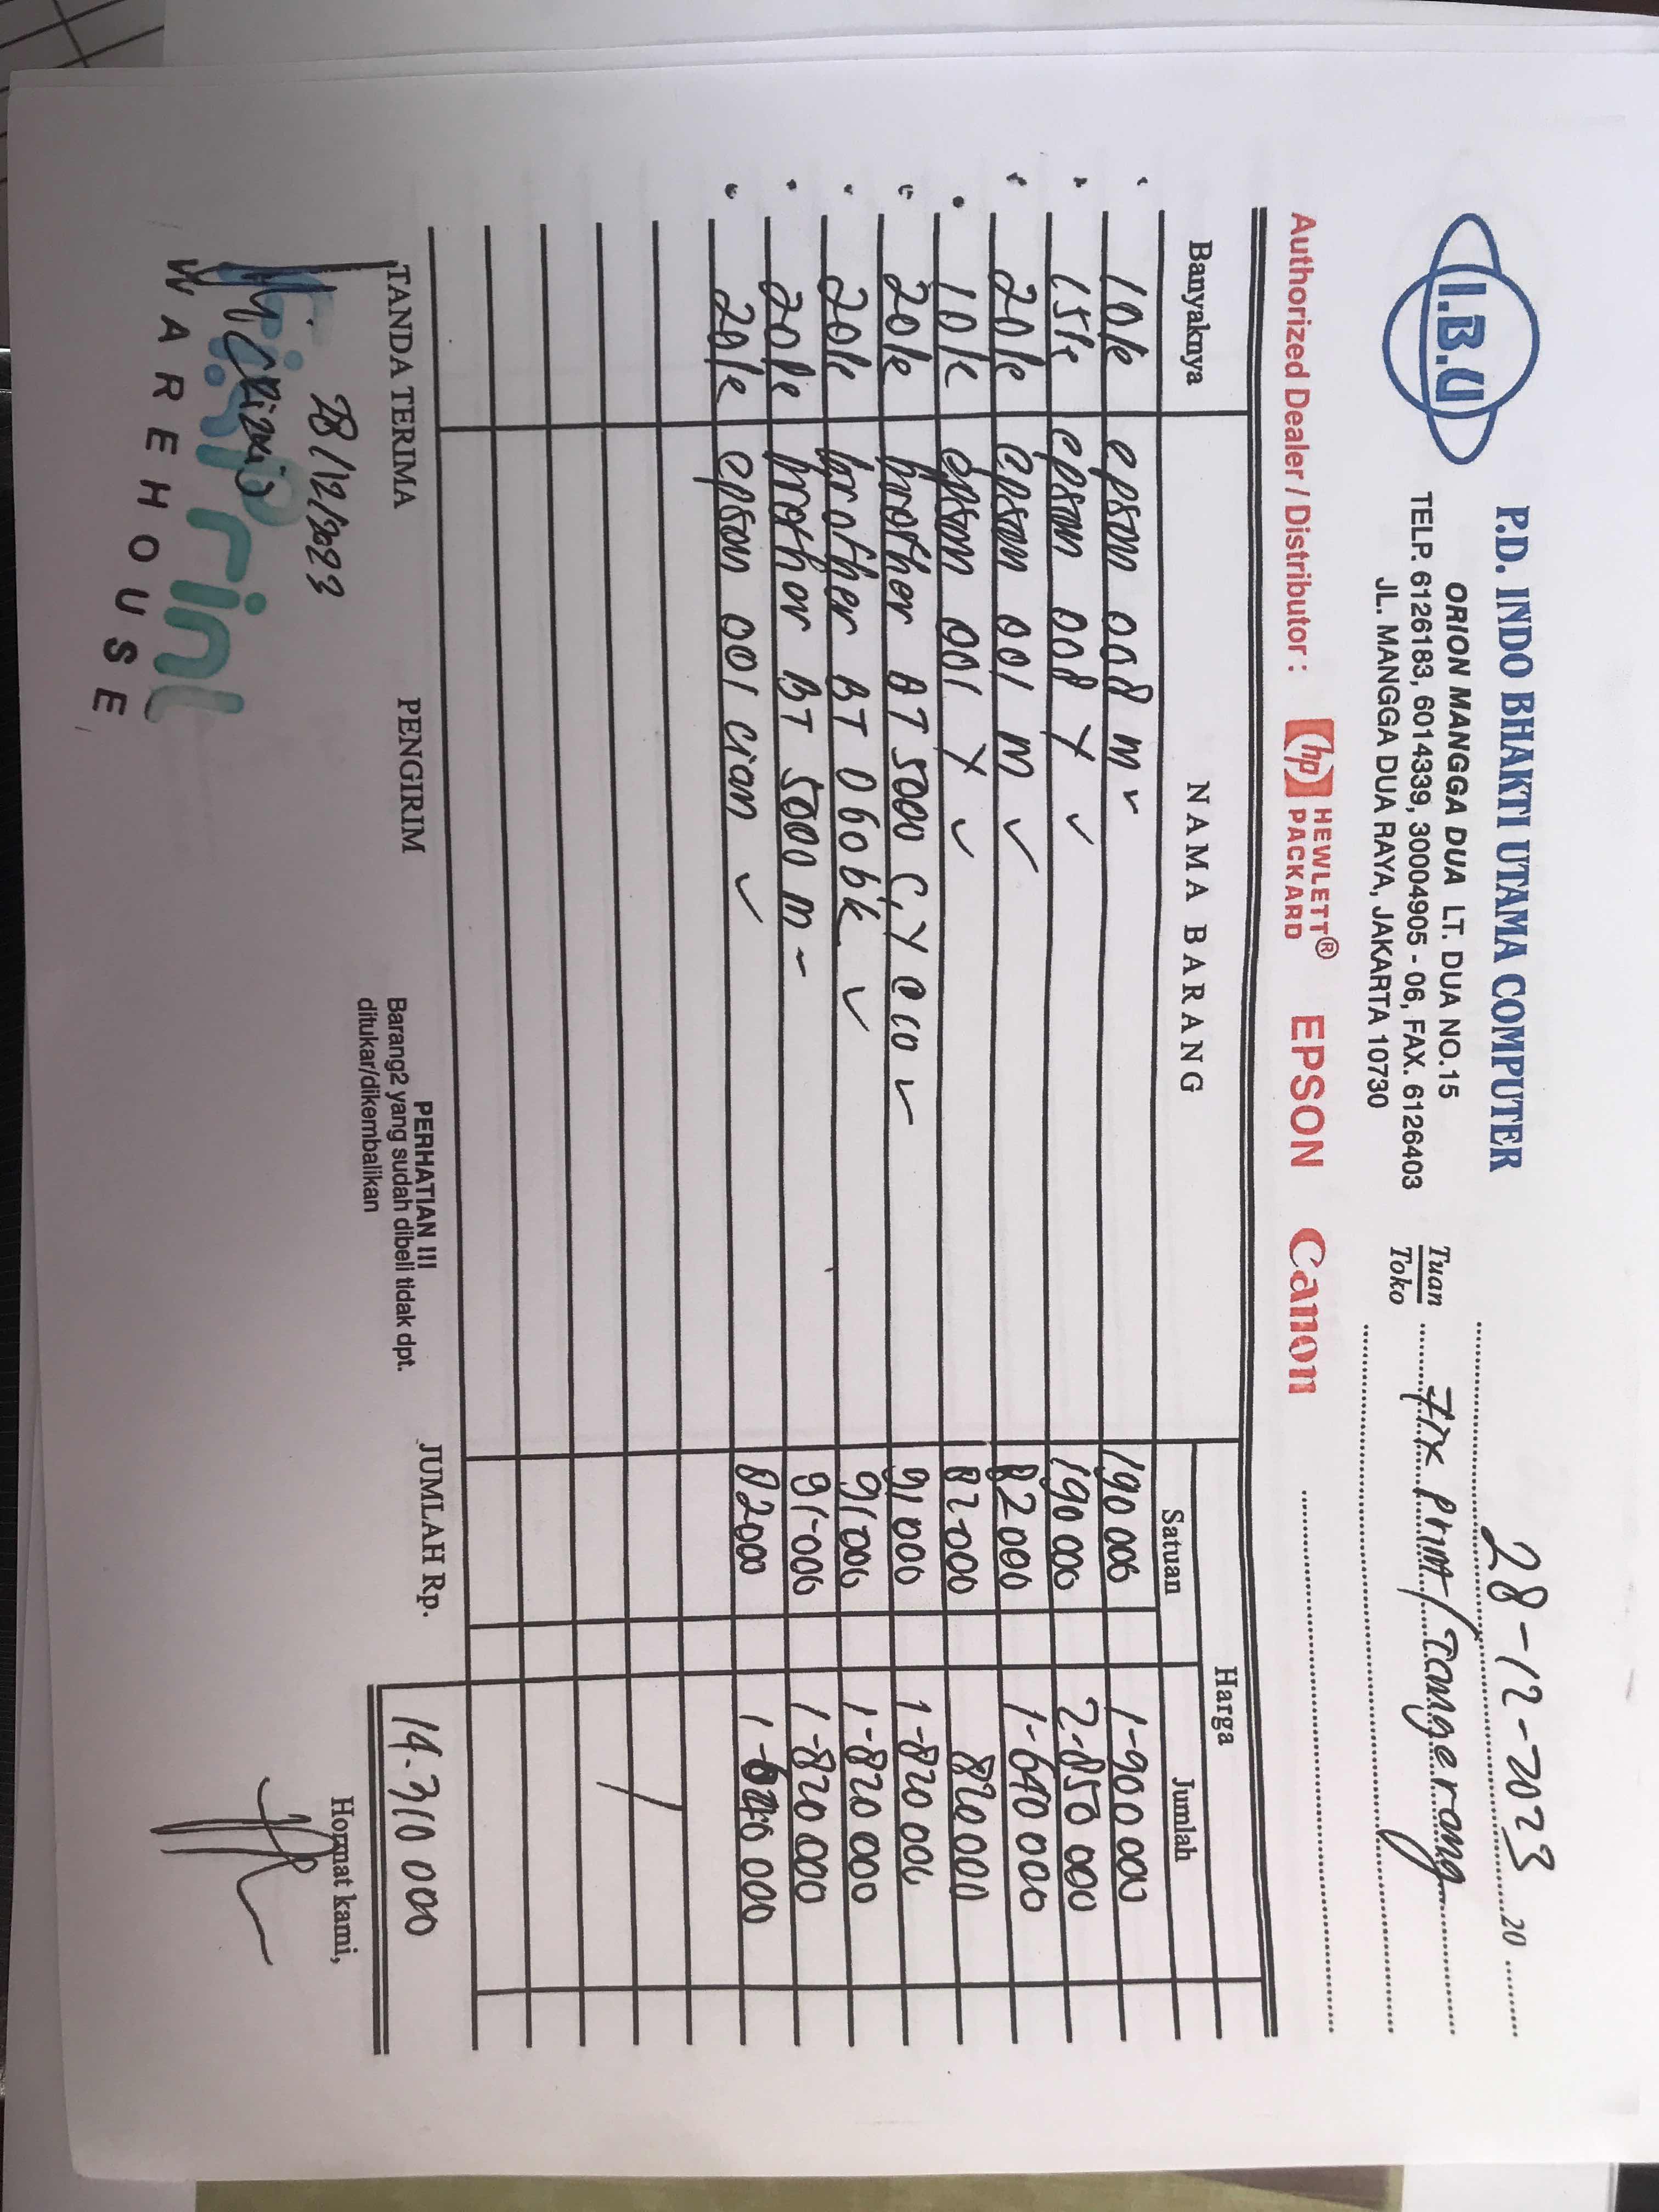 I.B.U
P.D. INDO BHAKTI UTAMA COMPUTER
ORION MANGGA DUA LT. DUA NO.15
TELP. 6126183, 6014339, 30004905 - 06, FAX. 6126403
JL. MANGGA DUA RAYA, JAKARTA 10730
28-12-2023 20
Tuan
Toko
Fix Print/Tangerang
Authorized Dealer / Distributor : hp HEWLETT® PACKARD EPSON Canon
Banyaknya NAMA BARANG Harga
Satuan Jumlah
10 epson 008 m 190 000 1-900 000
15 epson 008 Y 190 000 2-850 000
20 epson 001 m 82 000 1-640 000
10 epson 001 Y 82-000 820 000
20 brother BT 5000 C, Y @ 10 91 000 1-820 000
20 brother BT D60 bk 91 000 1-820 000
20 brother BT 5000 m 91-000 1-820 000
20 epson 001 cian 82000 1-640 000
TANDA TERIMA PENGIRIM JUMLAH Rp. 14.310 000
PERHATIAN !!!
Barang2 yang sudah dibeli tidak dpt.
ditukar/dikembalikan
Hormat kami,
28/12/2023
WAREHOUSE